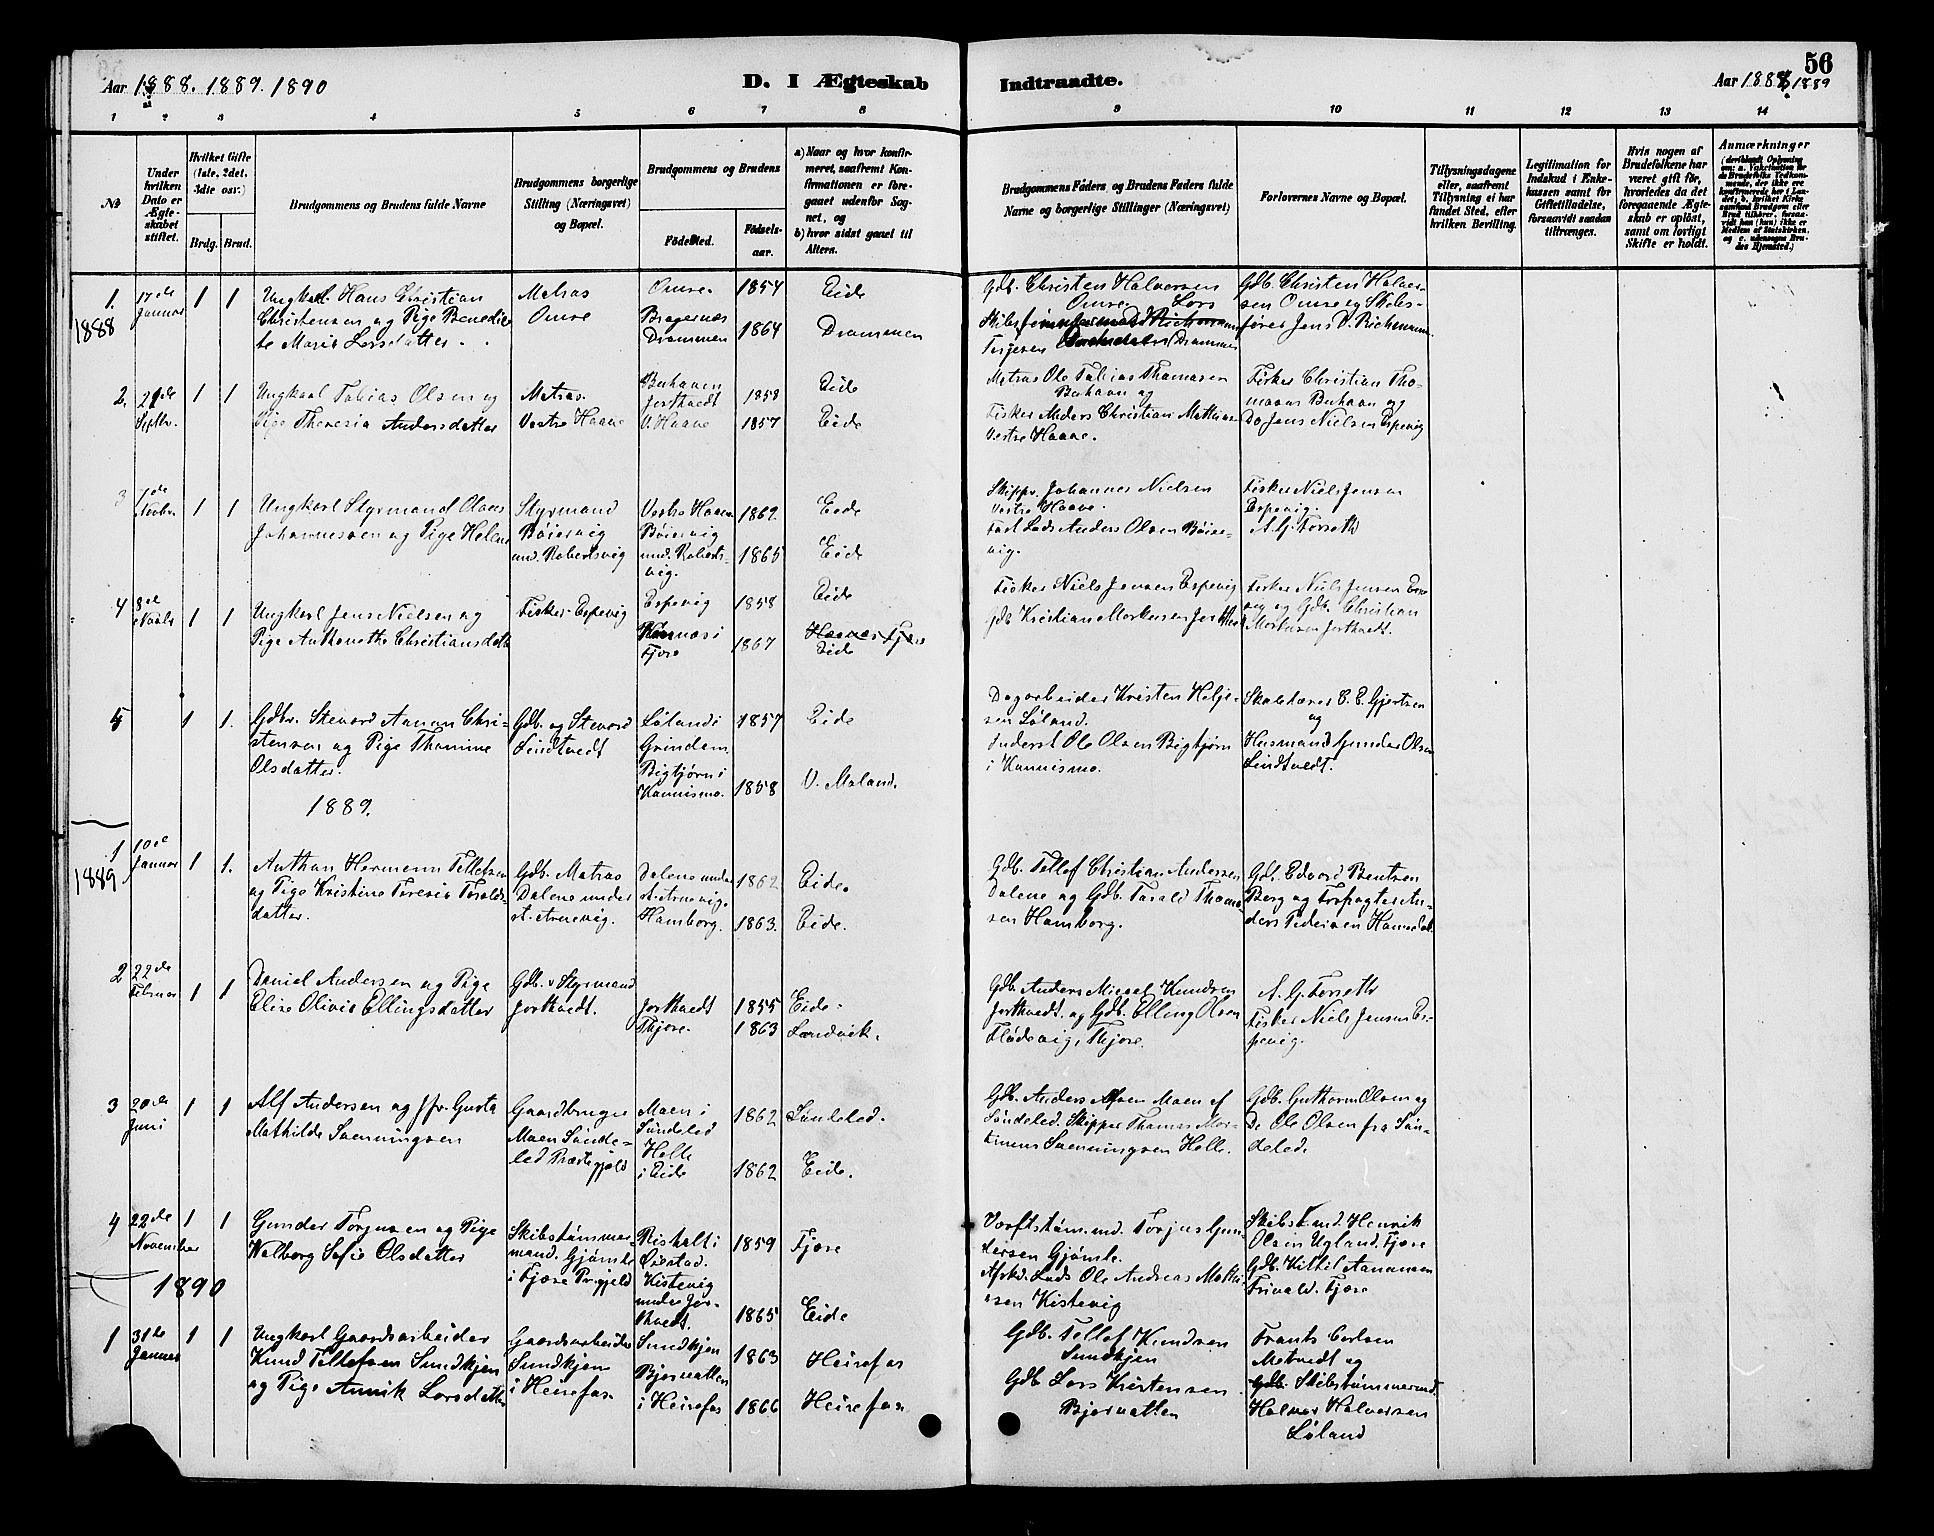 56
Aar 1888. 1889. 1890
D. I Ægteskab
Indtraadte.
Aar 1888 1889
1 2 3 4 5 6 7 8
9 10 11 12 13 14
№
Under hvilken Dato er Ægteskabet stiftet.
Hvilket Gifte (1ste, 2det, 3die osv.)
Brdg. Brud.
Brudgommens og Brudens fulde Navne
Brudgommens borgerlige Stilling (Næringsvei) og Bopæl.
Brudgommens og Brudens
Födested.
Födsels-aar.
a) Naar og hvor konfirmeret, saafremt Konfirmationen er foregaaet udenfor Sognet, og
b) hvor sidst gaaet til Alters.
Brudgommens Faders og Brudens Faders fulde Navne og borgerlige Stillinger (Næringsvei)
Forlovernes Navne og Bopæl.
Tillysningsdagene eller, saafremt Tillysning ei har fundet Sted, efter hvilken Bevilling.
Legitimation for Indskud i Enkekassen samt for Giftetilladelse, forsaavidt saadan tiltrænges.
Hvis nogen af Brudefolkene har været gift för, hvorledes da det foregaaende Ægteskab er oplöst, samt om lovligt Skifte er holdt.
Anmærkninger
1. 1888
17de Januar
1 1
Ungkarl Hans Christian
Christensen og Pige Benedic-
te Marie Larsdatter.
Matros
Omre
Omre. 1854 Eide
Bragernæs
Drammen 1864 Drammen
Gdb. Christen Halvorsen
Omre Lars
Terjesen Drammen
Gdb. Christen Halvor-
sen Omre og Skibs-
fører Jens D. Richmann
2.
21de Septbr.
1 1
Ungkarl Tobias Olsen og
Pige Theresia Andersdatter
Matros
Vestre Haave
Buhaven
Jortvedt 1858 Eide
V. Haave 1857 Eide
Matros Ole Tobias Thomasen
Buhaven og
Fisker Anders Christian Mathias-
Vestre Haave.
Fisker Christian Tho-
masen Buhaven og
Do Jens Nielsen Espevig
3
1de Novbr.
1 1
Ungkarl Styrmand Olaus
Johannessen og Pige Helene
Styrmand
Böiesvig
und. Robertsvig
Vestre Haave 1862. Eide
Böiesvig
und. Roberts-
vig. 1865 Eide
Skippr. Johannes Nielsen
Vestre Haave.
Fast Lods Anders Olsen Böies-
vig.
Fisker Niels Jensen
Espevig.
A. G. Forseth
4
8de Novbr
1 1
Ungkarl Jens Nielsen og
Pige Anthonette Christiansdatter
Fisker Espevig
Espevig 1858 Eide
Kornæs i
Fjære 1867 Eide
Fisker Niels Jensen Espevig
Gdb Kristian Morkensen Jortved
Fisker Niels Jensen Espe-
vig og Gdb. Christian
Mortensen Jortvedt.
5
1 1.
Gdbr. Steward Aanon Chri-
stensen og Pige Thomine
Olsdatter.
Gdb. og Steward
Lindtvedt
Løland i 1857 Eide
Grindem
Bigtjørn i
Kannismo. 1858 V. Moland.
Dagarbeider Kristen Helje-
sen Løland.
Inderst Ole Olsen Bigtjørn
i Kannismo.
Skoleholder E. E. Gjertsen
og
Husmand Gunder Olsen
Lindtvedt.
1889.
1 1889
10de Januar
1 1.
Anthon Hermenn Tellefsen
og Pige Kristine Teresia Torolds-
datter.
Gdb. Matros
Dalene under
st. Arnevig.
Dalene under 1862 Eide.
st. Arnevig.
Hamborg. 1863. Eide.
Gdb. Tellef Christian Andersen
Dalene og Gdb. Torald Thoma-
sen Hamborg.
Gdb. Edvard Bentsen
Berg og Forpagter An-
ders Pedersen Homedal.
2
22de Februar
1 1
Daniel Andersen og Pige
Elise Olivie Ellingsdatter
Gdb. v Styrmand
Jortvedt.
Jortvedt 1855 Eide.
Thjore. 1863 Landvik.
Gdb. Anders Michal Knudsen
Jortvedt. og Gdb. Elling Olsen
Flødevig, Thjore.
A. G. Forseth
Fisker Niels Jensen Es-
pevig.
3
20de Juni
1 1
Alf Andersen og Jfr. Gusta
Mathilde Svenningsen
Gaardbruger
Moen Sönde-
led Præstegjeld
Moen i 1862 Sündeled.
Söndeled
Helle
i Eide 1862 Eide.
Gdb. Anders Alfsen Moen af
Söndeled. Skipper Thomas Mor-
tinius Svenningsen Helle.
Gdb. Guthorm Olsen og
Do Ole Olsen fra Sön-
deled.
4
22de November
1 1
Gunder Torjusen og Pige
Walborg Sofie Olsdatter
Skibstømmer-
mand. Gjömle
i Fjære Pr.gjeld
Rishalt i 1859 Fjære
Øiestad.
Kistevig
under Jor-
tvedt. 1865 Eide
Værftstöm.md. Torjus Gun-
dersen Gjömle.
Afskd. Lods Ole Andreas Mathi-
asen Kistevig
Skibst.md. Henrik
Olsen Ugland. Fjære
Gdb. Kittil Aanonsen
Trivold. Fjære
1890
1
31te Januar
1 1
Ungkarl Gaardsarbeider
Knud Tellefsen Sundkjen
og Pige Annik Larsdatter
Gaardsarbeider
Sundkjen
i Heirefos.
Sundkjen 1863 Heirefos
Bjorvatten
i Heirefos 1866 Heirefos.
Gdb. Tellef Knudsen
Sundkjen
Gdb Lars Kristensen
Bjorvatten
Frants Carlsen
Metvedt og
Gdb. Skibstømmermd.
Halvor Halvorsen
Løland